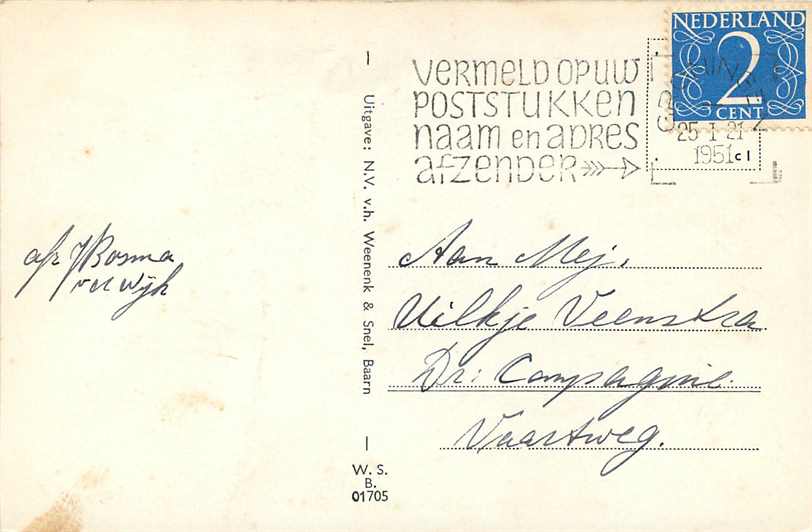 NEDERLAND
2
CENT
VERMELD OP UW
POSTSTUKKEN
NAAM en ADRES
AFZENDER
GRONINGEN
25-1 21
1951
c1
Uitgave: N.V. v.h. Weenenk & Snel, Baarn
afz J Bosma
v d Wijk
Aan Mej.
Uilkje Veenstra
Dr: Compagnie.
Vaartweg.
W. S.
B.
01705